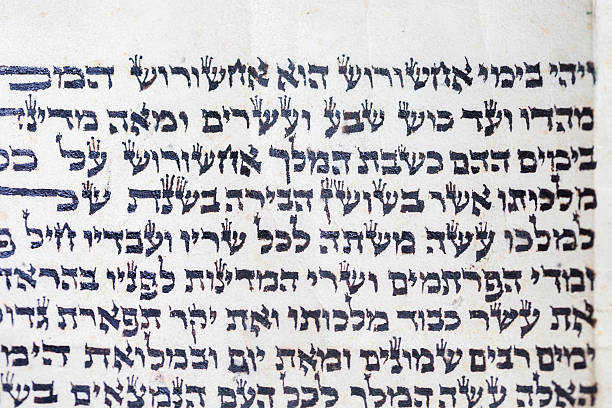 ויהי בימי אחשורוש הוא אחשורוש
מהדו ועד כוש שבע ועשרים ומאה מדינה
בימים ההם כשבת המלך אחשורוש על כס
מלכותו אשר בשושן הבירה בשנת של
למלכו עשה משתה לכל שריו ועבדיו חיל פ
ומדי הפרתמים ושרי המדינות לפניו בהרא
את עשר כבוד מלכותו ואת יקר תפארת גדו
ימים רבים שמונים ומאת יום ובמלואת הימ
האלה עשה המלך לכל העם הנמצאים בש